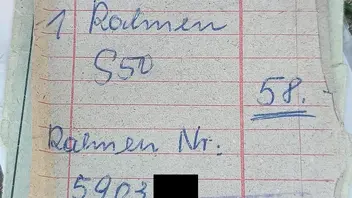 1 Rahmen
S50
58.-
Rahmen Nr.:
5903